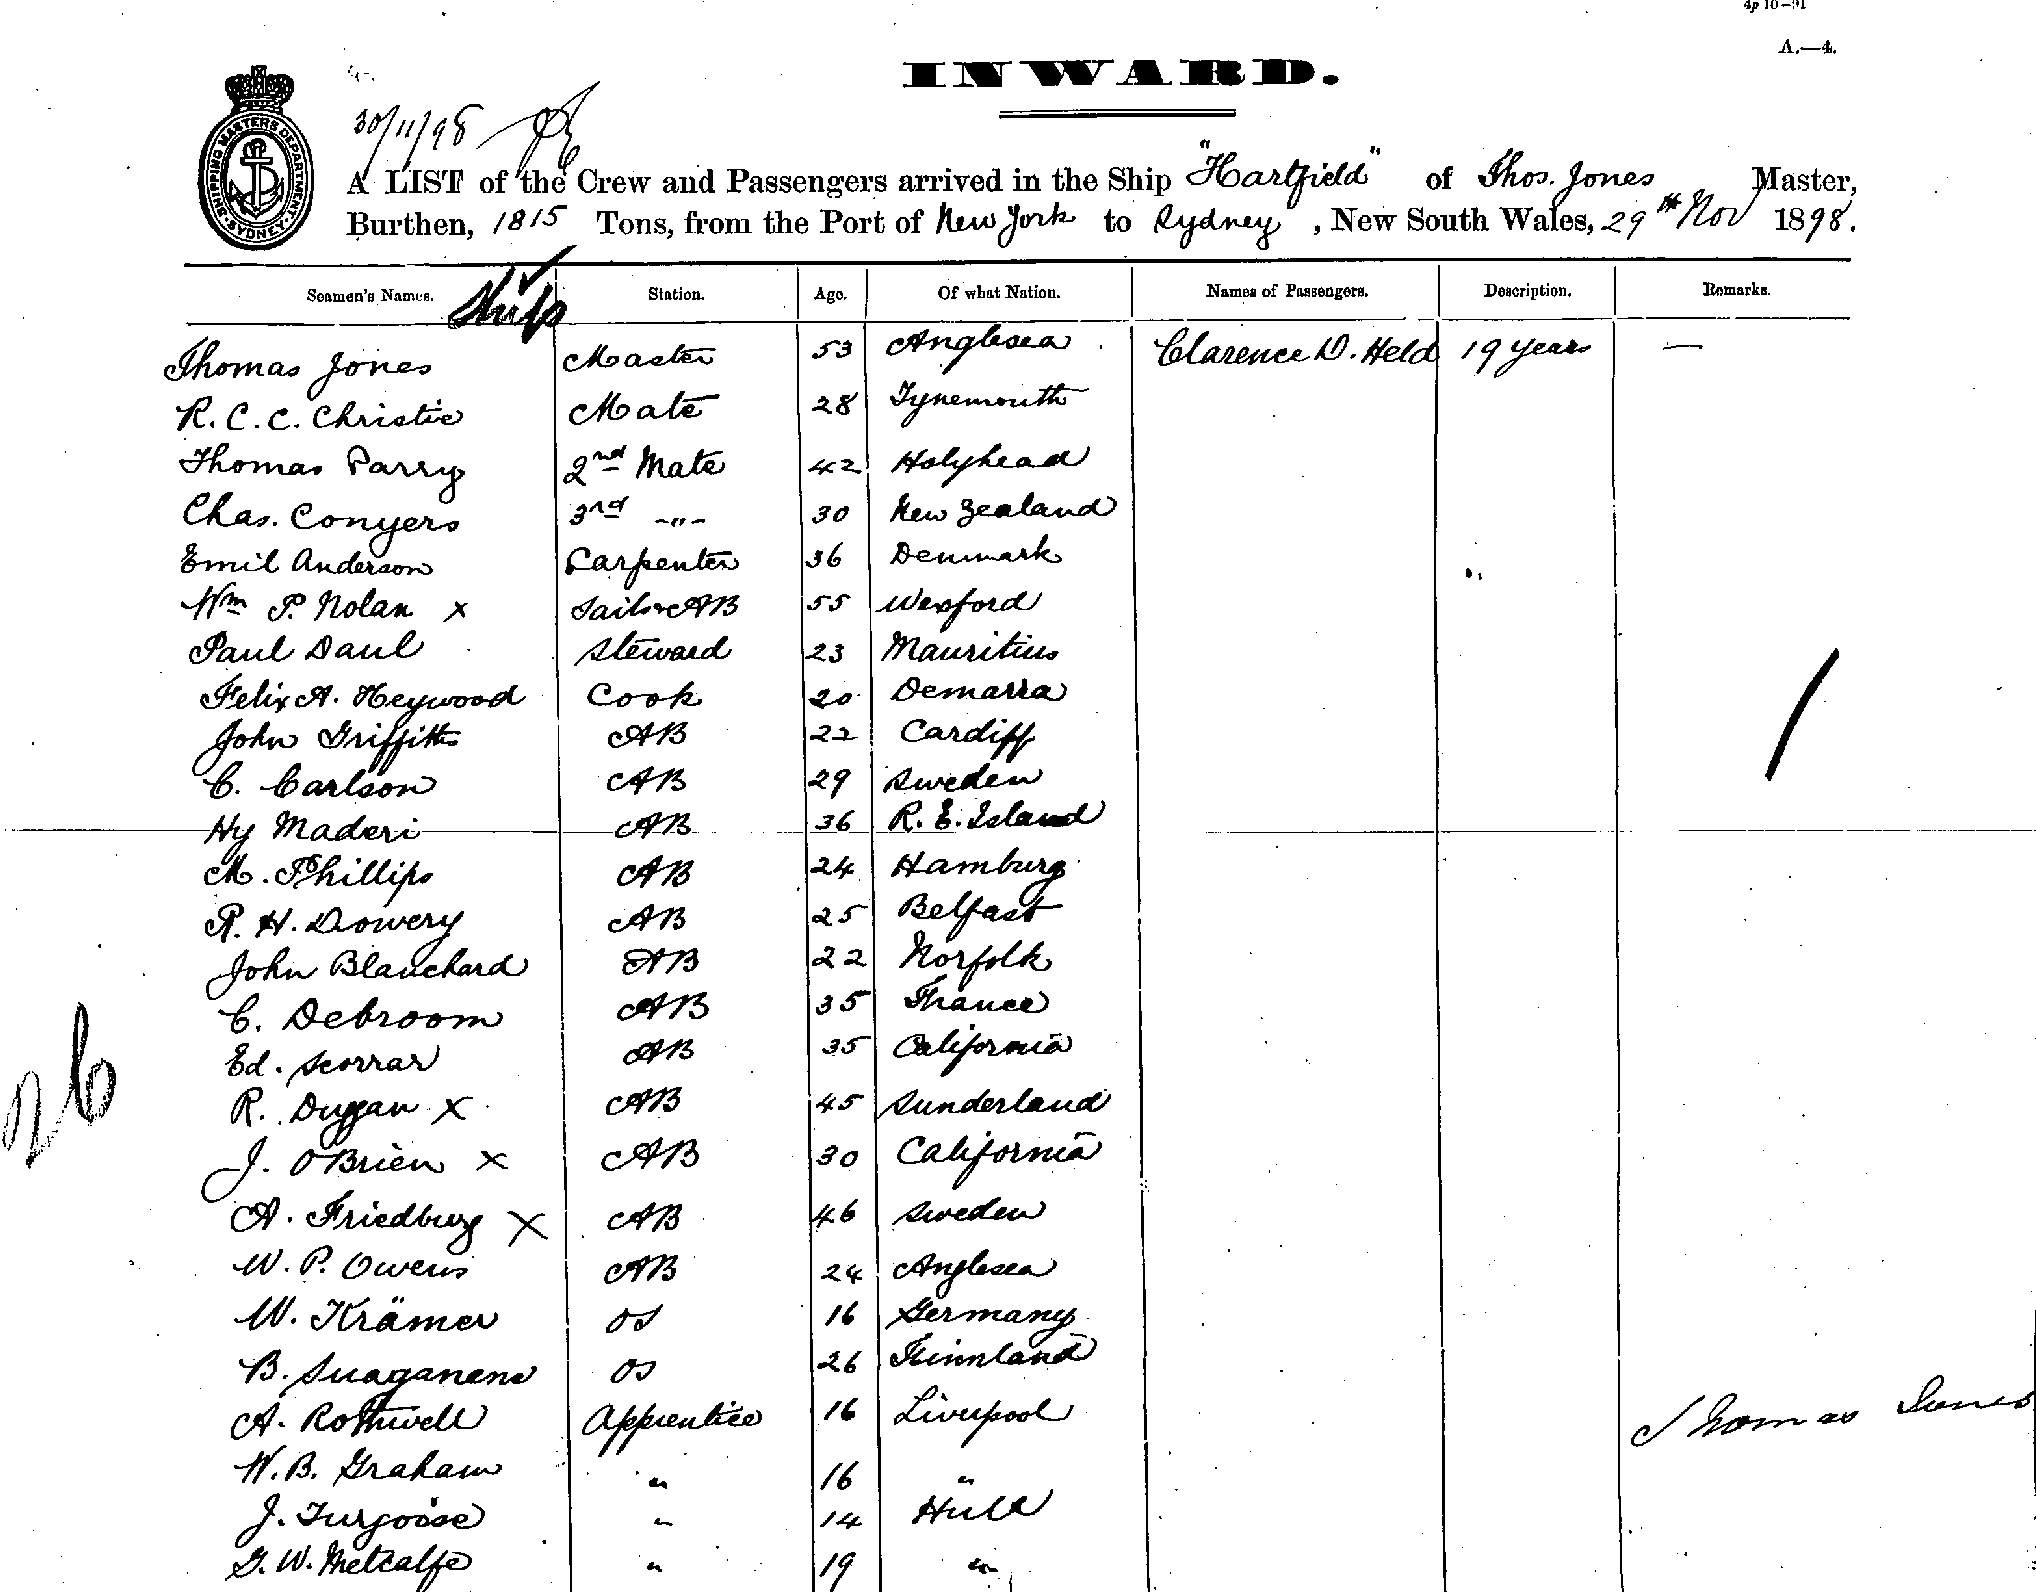 4p 10—91
A.—4.
INWARD.
SHIPPING MASTERS DEPARTMENT SYDNEY
30/11/98
A LIST of the Crew and Passengers arrived in the Ship "Hartfield" of Thos. Jones Master,
Burthen, 1815 Tons, from the Port of New York to Sydney, New South Wales, 29th Nov 1898.
Seamen's Names. Station. Age. Of what Nation. Names of Passengers. Description. Remarks.
Ships
Thomas Jones Master 53 Anglesea Clarence D. Held 19 years —
R. C. C. Christie Mate 28 Tynemouth
Thomas Parry 2nd Mate 42 Holyhead
Chas. Conyers 3rd -"- 30 New Zealand
Emil Anderson Carpenter 36 Denmark
Wm P. Nolan x Sailor AB 55 Wexford
Paul Daul Steward 23 Mauritius
Felix A. Heywood Cook 20 Demarra
John Griffiths AB 22 Cardiff
C. Carlson AB 29 Sweden
Hy Maderi AB 36 R. E. Island
M. Phillips AB 24 Hamburg
R. H. Dowery AB 25 Belfast
John Blanchard AB 22 Norfolk
C. Debroom AB 35 France
Ed. Scorrar AB 35 California
R. Duggan x AB 45 Sunderland
J. O'Brien x AB 30 California
26
A. Friedburg x AB 46 Sweden
W. P. Owens AB 24 Anglesea
W. Krämer OS 16 Germany
B. Suaganene OS 26 Finnland
A. Rothwell Apprentice 16 Liverpool
Thomas Jones
W. B. Graham " 16 "
J. Turgoose " 14 Hull
G. W. Metcalfe " 19 "